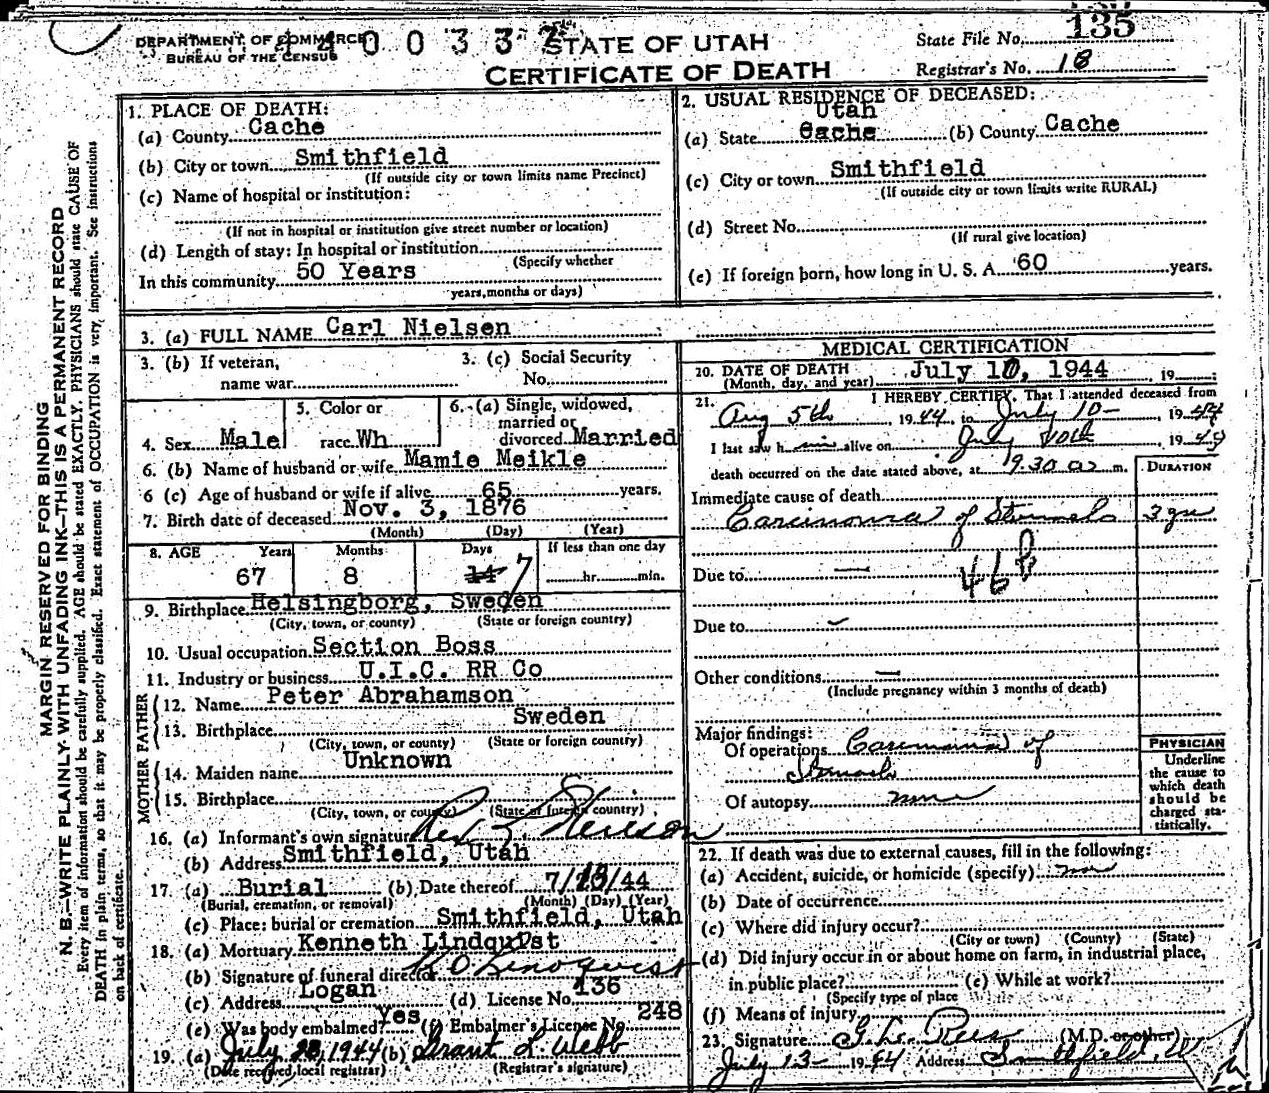 135
DEPARTMENT OF COMMERCE
BUREAU OF THE CENSUS
STATE OF UTAH
CERTIFICATE OF DEATH
State File No. 135
Registrar's No. 18
MARGIN RESERVED FOR BINDING
N. B.—WRITE PLAINLY WITH UNFADING INK—THIS IS A PERMANENT RECORD
Every item of information should be carefully supplied. AGE should be stated EXACTLY. PHYSICIANS should state CAUSE OF
DEATH in plain terms, so that it may be properly classified. Exact statement of OCCUPATION is very important. See instructions
on back of certificate.
1. PLACE OF DEATH:
(a) County Cache
(b) City or town Smithfield
(If outside city or town limits name Precinct)
(c) Name of hospital or institution:
(If not in hospital or institution give street number or location)
(d) Length of stay: In hospital or institution
(Specify whether
In this community 50 Years
years, months or days)
2. USUAL RESIDENCE OF DECEASED:
Utah
(a) State Cache (b) County Cache
(c) City or town Smithfield
(If outside city or town limits write RURAL)
(d) Street No.
(If rural give location)
(e) If foreign born, how long in U. S. A. 60 years.
3. (a) FULL NAME Carl Nielsen
3. (b) If veteran, name war
3. (c) Social Security No.
4. Sex Male
5. Color or race Wh
6. (a) Single, widowed, married or divorced Married
6. (b) Name of husband or wife Mamie Meikle
6 (c) Age of husband or wife if alive 65 years.
7. Birth date of deceased Nov. 3, 1876
(Month) (Day) (Year)
8. AGE Years Months Days If less than one day
67 8 14 7 hr. min.
9. Birthplace Helsingborg, Sweden
(City, town, or county) (State or foreign country)
10. Usual occupation Section Boss
11. Industry or business U.I.C. RR Co
FATHER
12. Name Peter Abrahamson
13. Birthplace Sweden
(City, town, or county) (State or foreign country)
MOTHER
14. Maiden name Unknown
15. Birthplace
(City, town, or county) (State or foreign country)
16. (a) Informant's own signature
(b) Address Smithfield, Utah
17. (a) Burial (b) Date thereof 7/13/44
(Burial, cremation, or removal) (Month) (Day) (Year)
(c) Place: burial or cremation Smithfield, Utah
18. (a) Mortuary Kenneth Lindquist
(b) Signature of funeral director K O Lindquist
(c) Address Logan (d) License No. 136
(e) Was body embalmed? Yes (f) Embalmer's License No. 248
19. (a) July 1944 (b) Grant L. Webb
(Date received local registrar) (Registrar's signature)
MEDICAL CERTIFICATION
20. DATE OF DEATH July 10, 1944, 19
(Month, day, and year)
21. I HEREBY CERTIFY, That I attended deceased from
Aug 5th, 1944, to July 10-, 1944
I last saw him alive on July 10th, 1944
death occurred on the date stated above, at 9.30 a. m.
DURATION
Immediate cause of death
Carcinoma of Stomach 3 yrs
Due to —
46b
Due to
Other conditions —
(Include pregnancy within 3 months of death)
Major findings:
Of operations Carcinoma of
Stomach
Of autopsy none
PHYSICIAN
Underline
the cause to
which death
should be
charged sta-
tistically.
22. If death was due to external causes, fill in the following:
(a) Accident, suicide, or homicide (specify) no
(b) Date of occurrence
(c) Where did injury occur?
(City or town) (County) (State)
(d) Did injury occur in or about home on farm, in industrial place,
in public place? (e) While at work?
(Specify type of place
(f) Means of injury
23. Signature (M.D. or other)
July 13- 1944 Address Smithfield, U